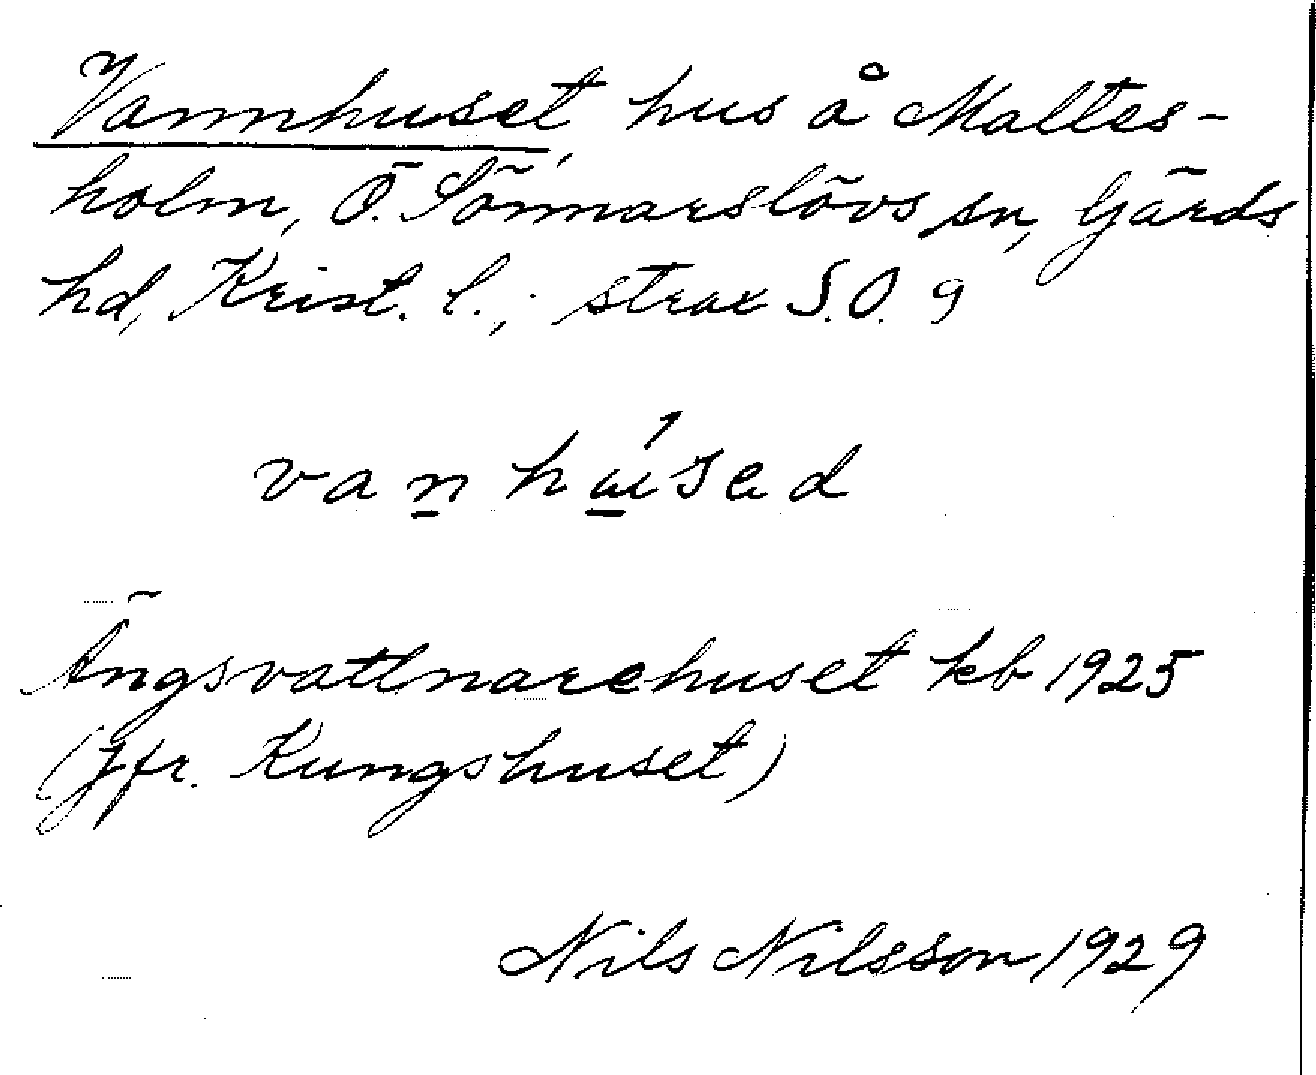 Vannhuset, hus å Maltes-
holm, Ö. Sönnarslövs sn, Gärds
hd, Krist. l.; strax S.O. 9
Ängsvattnarehuset kb 1925
(Jfr. Kungshuset)
Nils Nilsson 1929